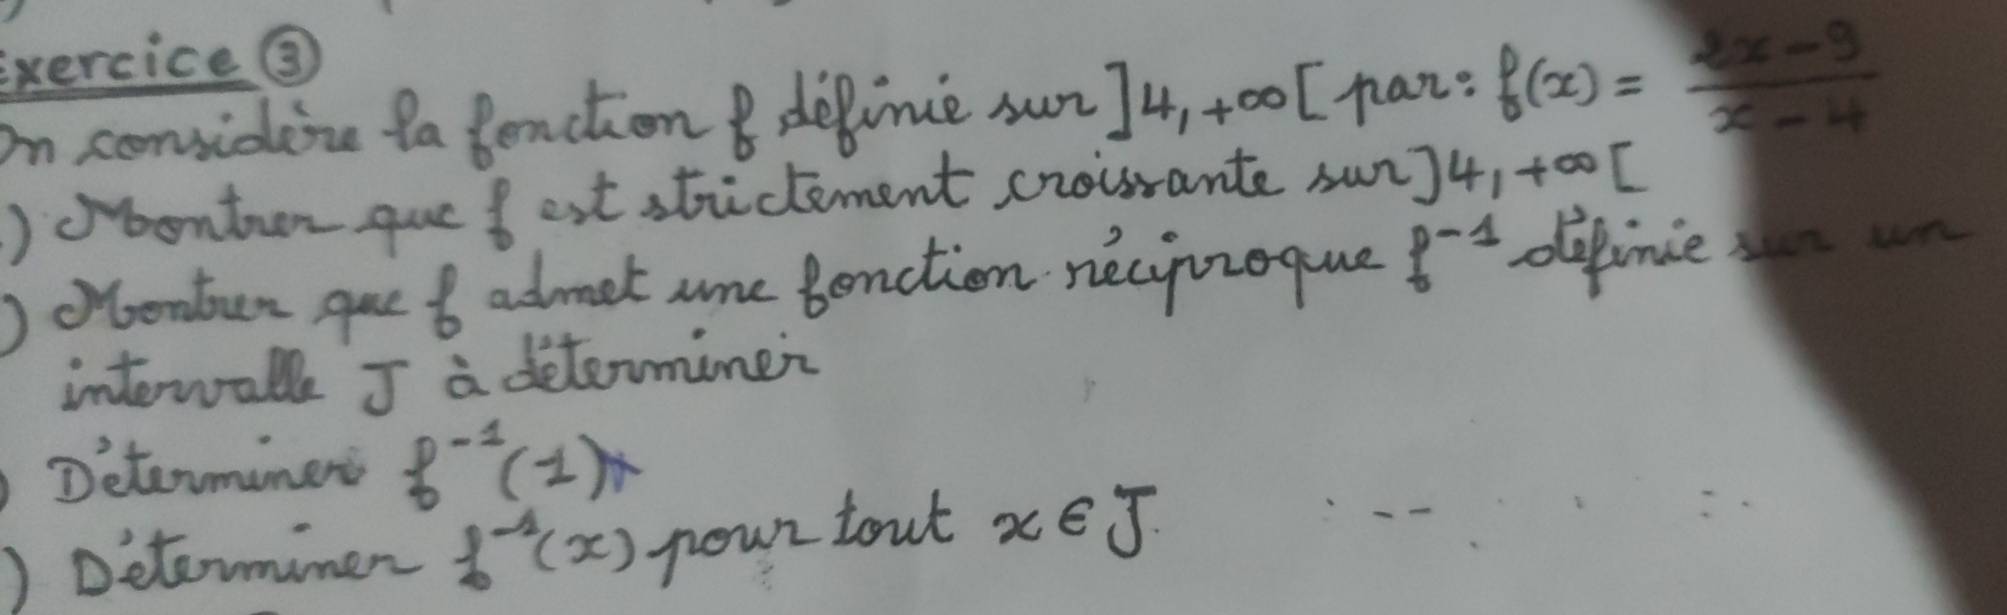 Exercice ③
On considère la fonction f définie sur ]4,+∞[ par: f(x) = (2x-9)/(x-4)
) Montrer que f est strictement croissante sur ]4,+∞[
) Montrer que f admet une fonction réciproque f⁻¹ définie sur un
intervalle J à déterminer
) Déterminer f⁻¹(1)
) Déterminer f⁻¹(x) pour tout x ∈ J.